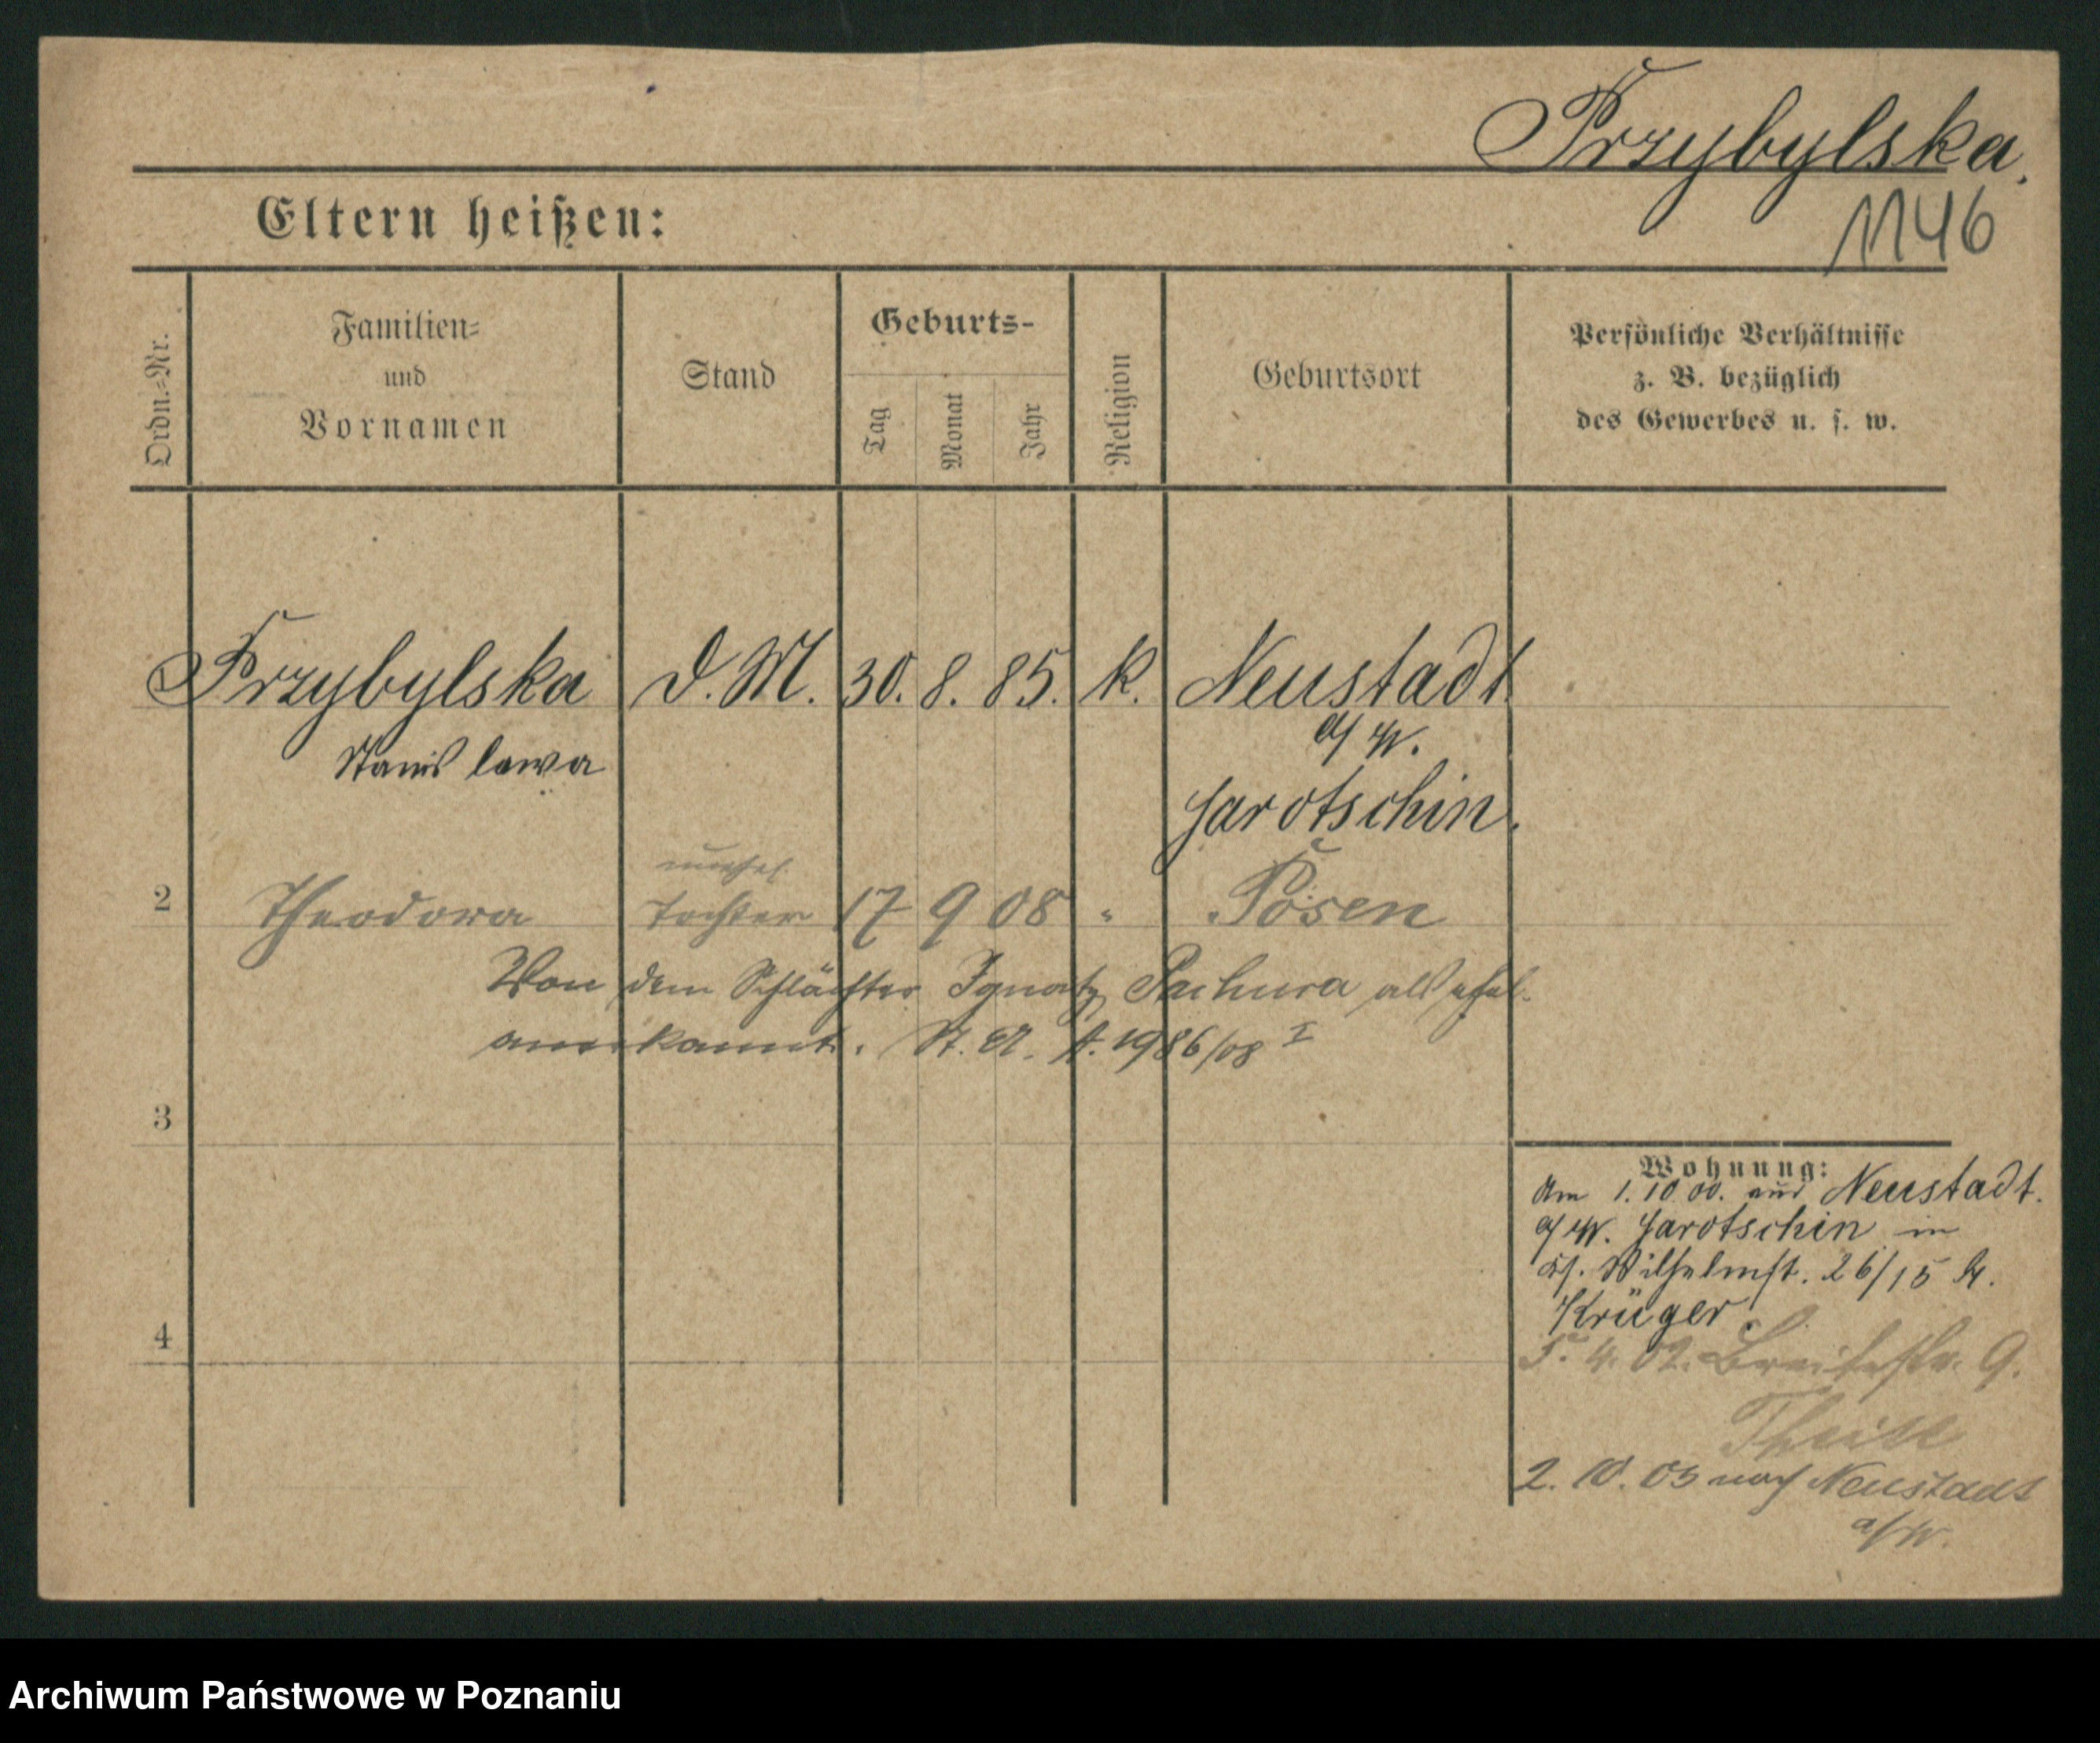 Przybylska.
Eltern heißen:
1146
Ordn.=Nr.
Familien=
und
Vornamen
Stand
Geburts-
Tag
Monat
Jahr
Religion
Geburtsort
Persönliche Verhältnisse
z. B. bezüglich
des Gewerbes u. s. w.
Przybylska D.M. 30. 8. 85. k. Neustadt
Stanislawa
a/W.
Jarotschin.
unehel.
2 Theodora Tochter 17 9 08 " Posen
Von dem Schlächter Ignatz Pachura als ehel.
anerkannt. St. A. A. 1986/08 I
3
Wohnung:
Am 1.10.00. aus Neustadt.
a/W. Jarotschin in
Wilhelmst. 26/15 b.
Krüger.
4
5. 4. 02. Breitestr. 9.
2. 10. 03 nach Neustadt
a/W.
Archiwum Państwowe w Poznaniu